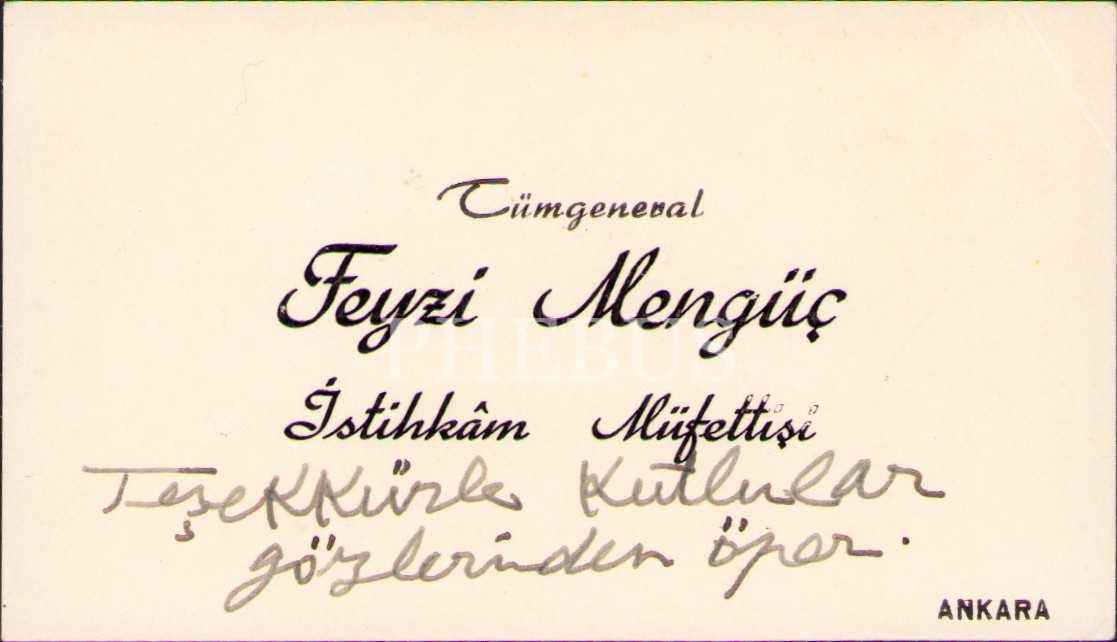 Tümgeneral
Feyzi Mengüç
PHEBUS
İstihkâm Müfettişi
Teşekkürle kutlular
gözlerinden öper.
ANKARA